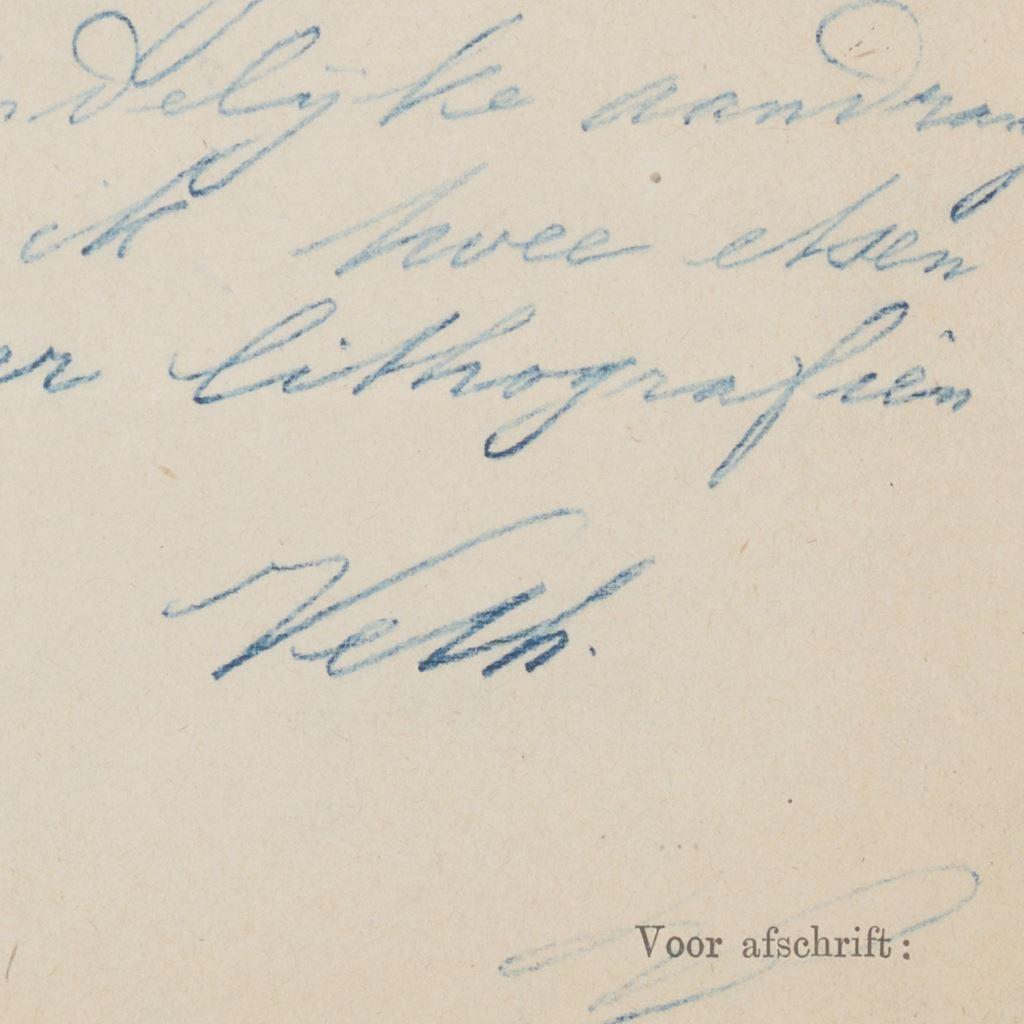 ndelijke aandrang
ik twee etsen
er lithografiën
Veth.
Voor afschrift: